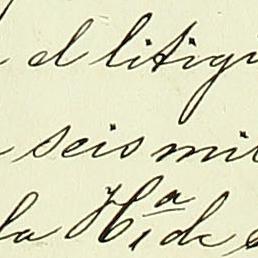 el litigi
seis mil
la Hª de